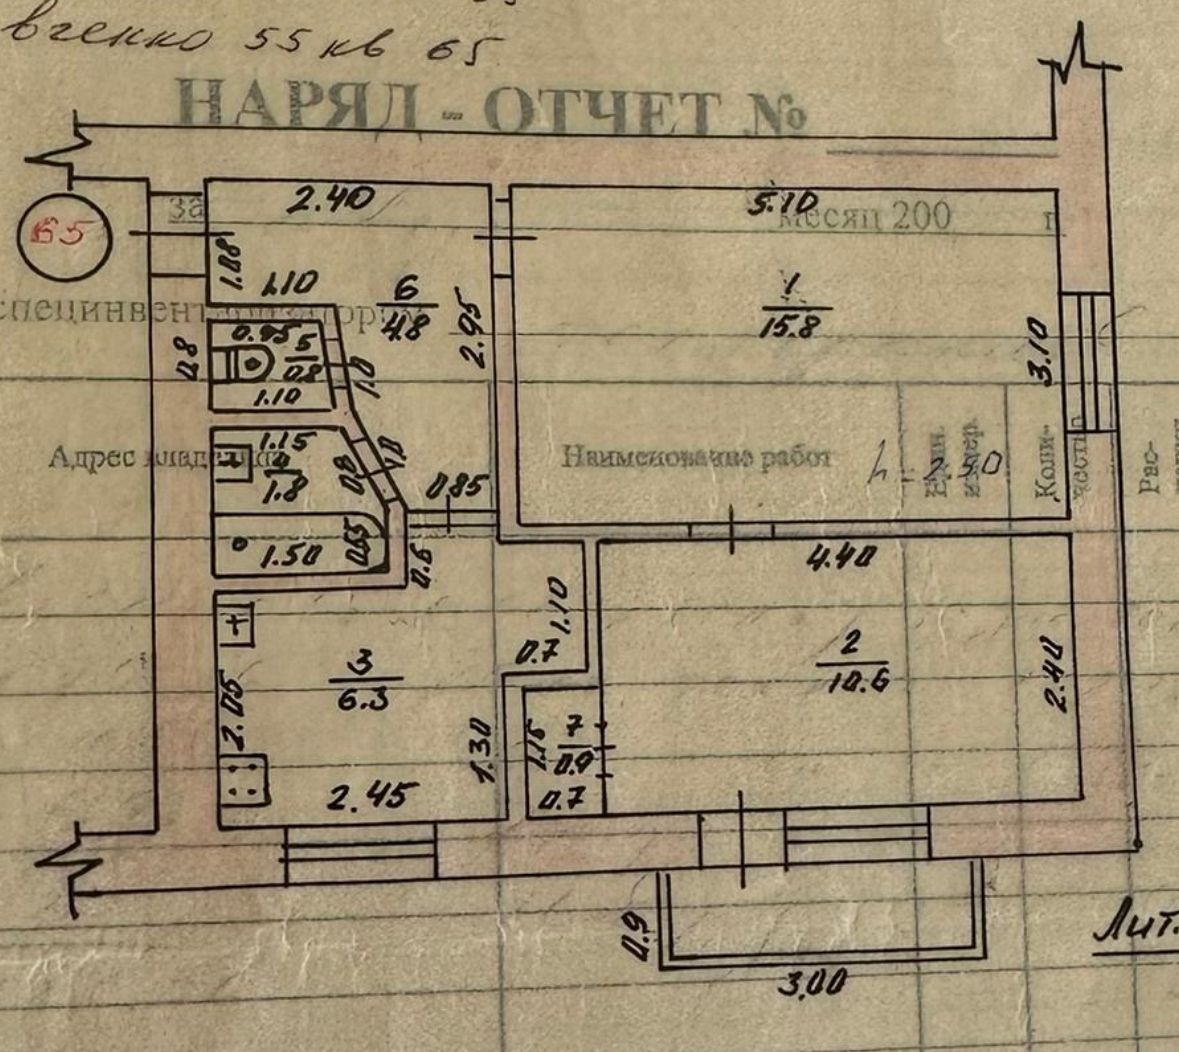 вченко 55 кв 65
НАРЯД - ОТЧЕТ №
за
месяц 200 г
65
2.40
5.10
1.08
1.10
6
4.8
2.95
1
15.8
3.10
специнвент
0.95
5
0.8
0.8
1.0
1.10
Адрес владельца
Наименование работ
h - 2.50
Един. измер.
Коли-
чество
Рас-
1.15
4
1.8
0.8
1.0
0.85
1.50
0.65
0.6
4.40
1.10
0.7
2
10.6
2.40
3
6.3
2.05
1.30
1.15
7
0.9
0.7
2.45
0.9
3.00
Лит.